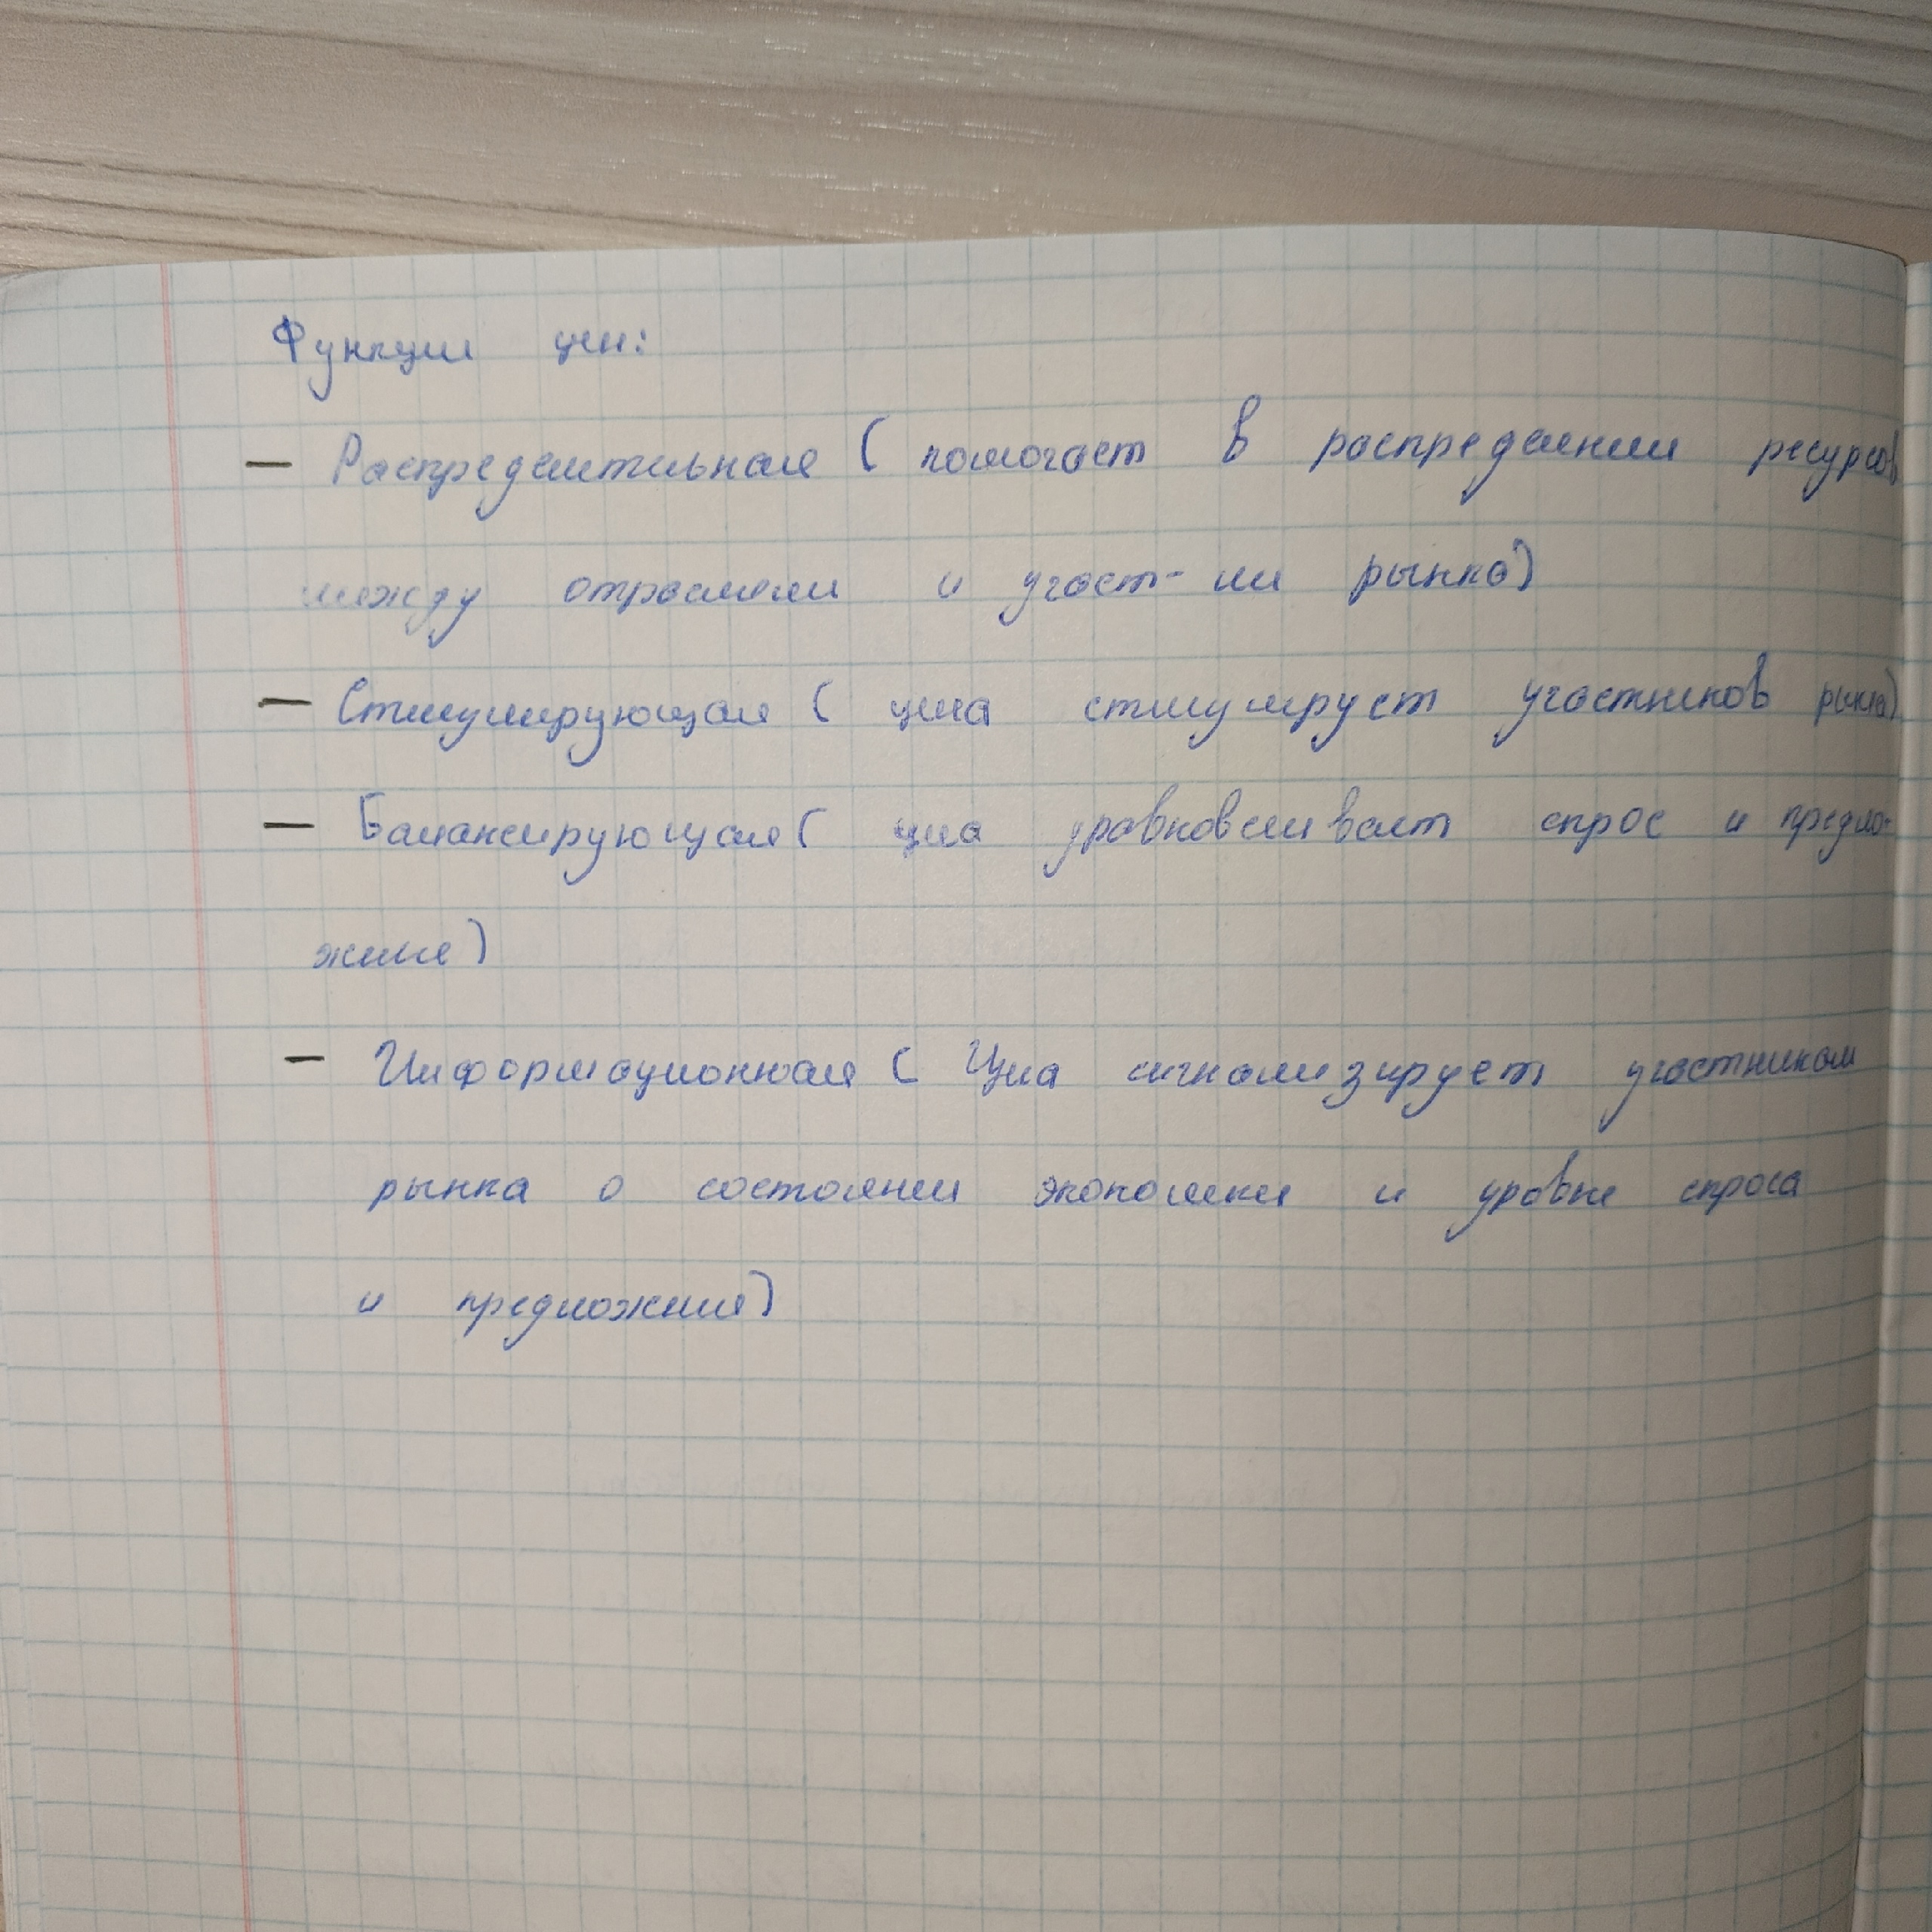 Функции цен:
— Распределительная ( помогает в распределении ресурсов
между отраслями и участ-ми рынка)
— Стимулирующая ( цена стимулирует участников рынка)
— Балансирующая ( цена уравновешивает спрос и предло-
жение)
— Информационная ( Цена сигнализирует участникам
рынка о состоянии экономики и уровне спроса
и предложения)